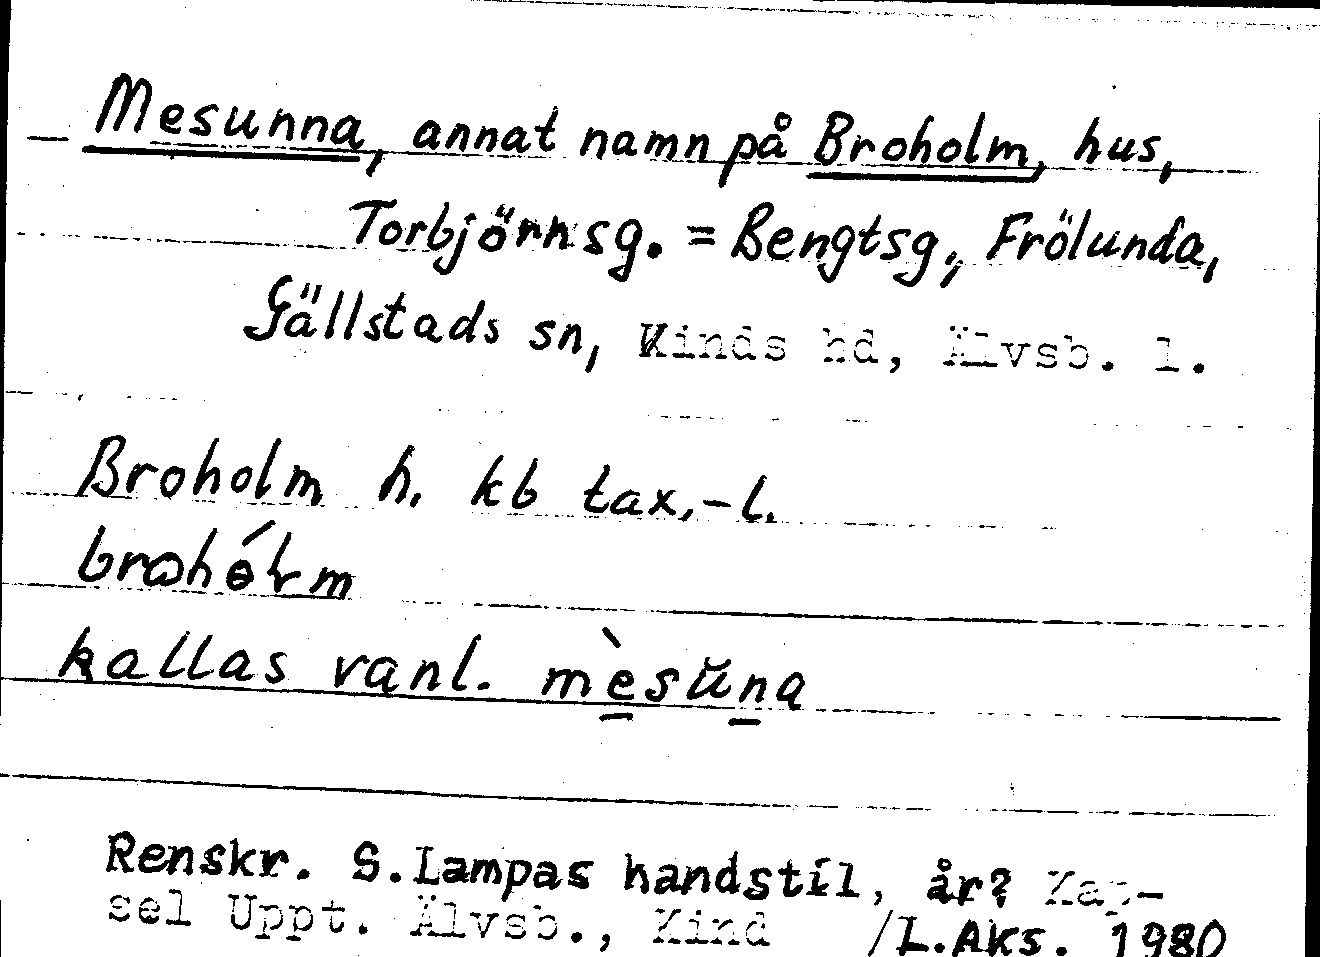 Mesunna, annat namn på Broholm, hus,
Torbjörnsg. = Bengtsg., Frölunda,
Gällstads sn, Kinds hd, Älvsb. l.
Broholm h. kb tax.-l.
kallas vanl. mèsŭna
Renskr. S.Lampas handstil, år? Kap-
sel Uppt. Älvsb., Kind /L.Aks. 1980